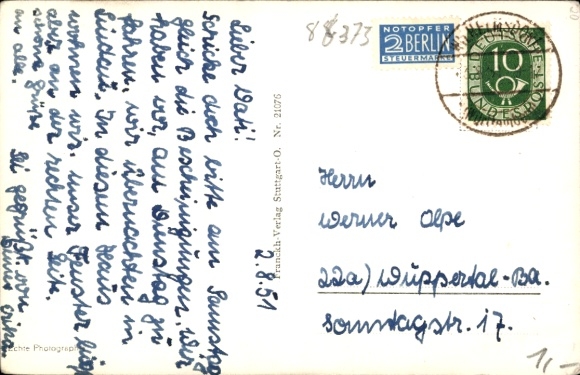 Lieber Vati!
Schicke doch bitte am Samstag
gleich die Bescheinigungen, wir
haben vor, am Dienstag zu
fahren, wir übernachten in
Lindau. In diesem Haus
wohnen wir, unser Fenster liegt
aber an der rechten Seite.
an alle. Sei gegrüßt von
2.8.51
Franckh-Verlag Stuttgart-O. Nr. 21076
Echte Photographie
88373
NOTOPFER
2 BERLIN
STEUERMARKE
10
Herrn
Werner Alpe
22a) Wuppertal-Ba.
Sonntagstr. 17.
1,-